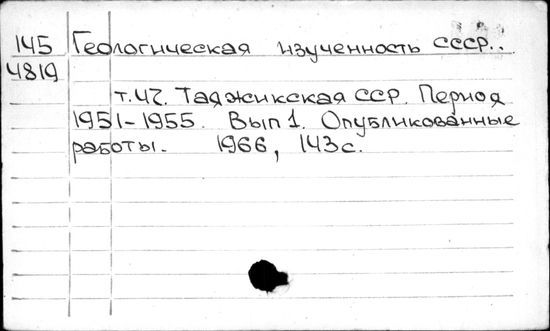 145 Геологическая изученность СССР..
4819
т.42. Таджикская ССР. Период
1951-1955. Вып 1. Опубликованные
работы. 1966, 143с.